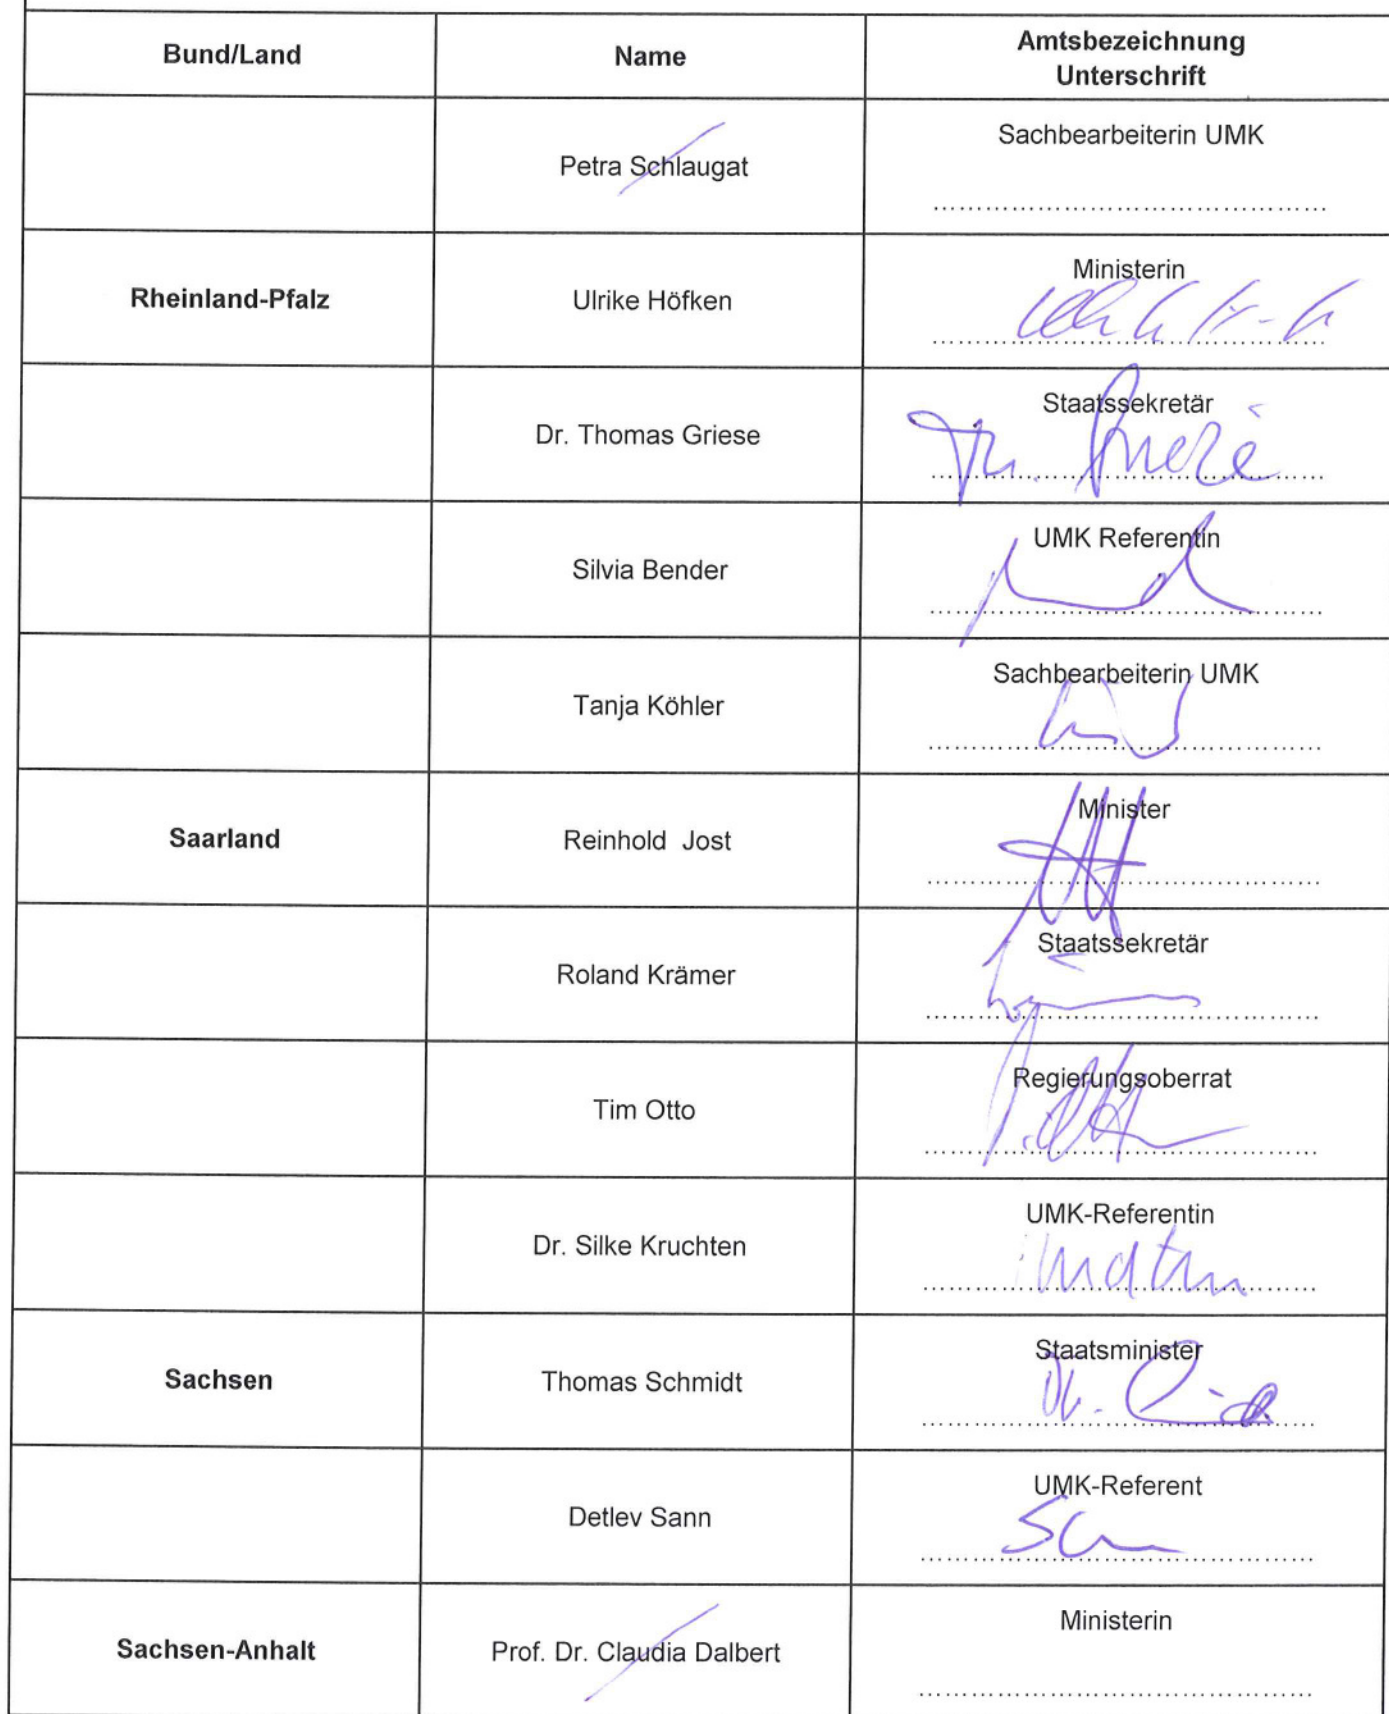 Bund/Land
Name
Amtsbezeichnung
Unterschrift
Petra Schlaugat
Sachbearbeiterin UMK
Rheinland-Pfalz
Ulrike Höfken
Ministerin
Dr. Thomas Griese
Staatssekretär
Silvia Bender
UMK Referentin
Tanja Köhler
Sachbearbeiterin UMK
Saarland
Reinhold Jost
Minister
Roland Krämer
Staatssekretär
Tim Otto
Regierungsoberrat
Dr. Silke Kruchten
UMK-Referentin
Sachsen
Thomas Schmidt
Staatsminister
Detlev Sann
UMK-Referent
Sachsen-Anhalt
Prof. Dr. Claudia Dalbert
Ministerin